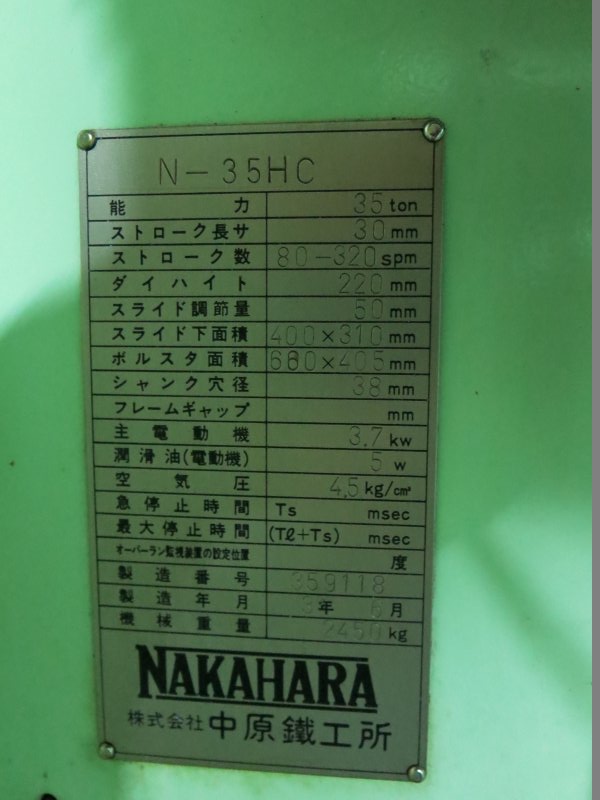 N-35HC
能力 35 ton
ストローク長サ 30 mm
ストローク数 80-320 spm
ダイハイト 220 mm
スライド調節量 50 mm
スライド下面積 400×310 mm
ボルスタ面積 680×405 mm
シャンク穴径 38 mm
フレームギャップ mm
主電動機 3.7 kw
潤滑油(電動機) 5 w
空気圧 4.5 kg/cm²
急停止時間 Ts msec
最大停止時間 (Tℓ+Ts) msec
オーバーラン監視装置の設定位置 度
製造番号 359118
製造年月 3年 6月
機械重量 2450 kg
NAKAHARA
株式会社 中原鐵工所